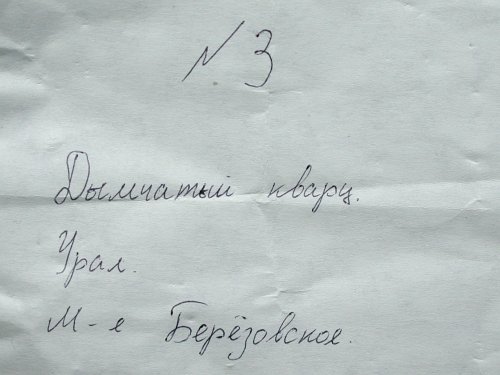 N 3
Дымчатый кварц.
Урал.
М-е Берёзовское.